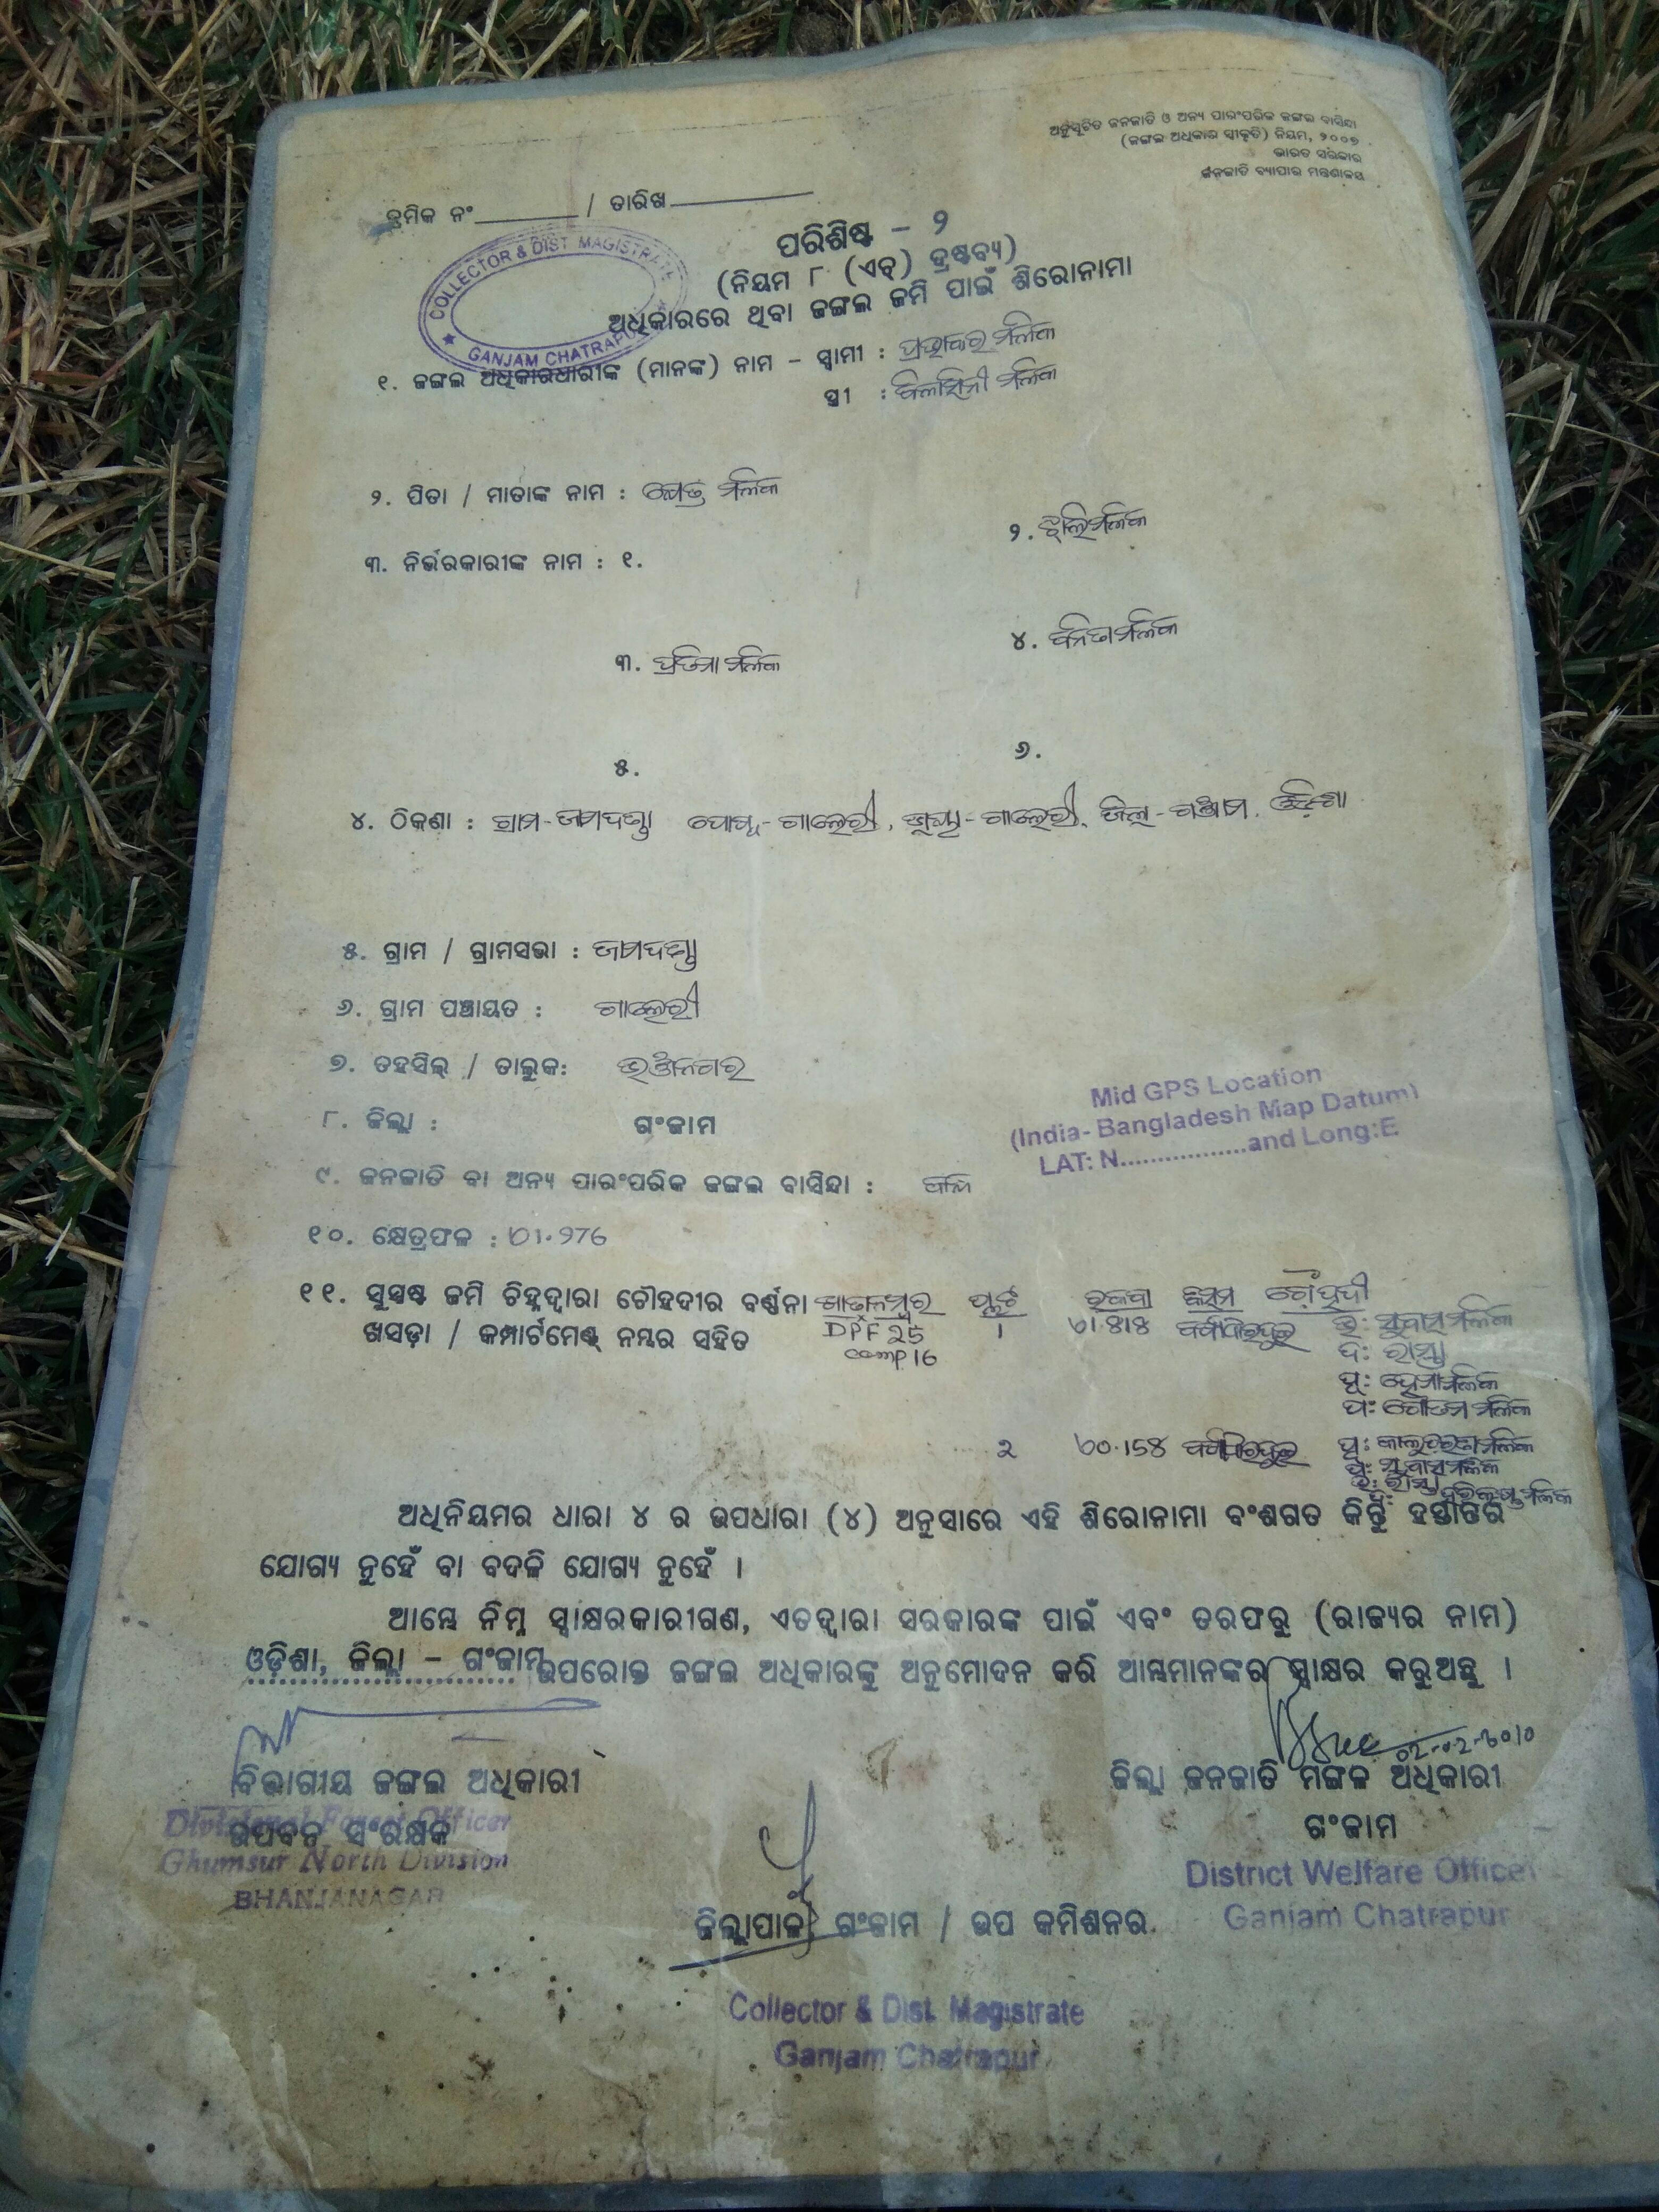 ଅନୁସୂଚିତ ଜନଜାତି ଓ ଅନ୍ୟ ପାରଂପରିକ ଜଙ୍ଗଲ ବାସିନ୍ଦା
(ଜଙ୍ଗଲ ଅଧିକାର ସ୍ୱୀକୃତି) ନିୟମ, ୨୦୦୭
ଭାରତ ସରକାର
ଜନଜାତି ବ୍ୟାପାର ମନ୍ତ୍ରଣାଳୟ
କ୍ରମିକ ନଂ / ତାରିଖ
COLLECTOR & DIST. MAGISTRATE
GANJAM CHATRAPUR
ପରିଶିଷ୍ଟ - ୨
(ନିୟମ ୮ (ଏଚ୍) ଦ୍ରଷ୍ଟବ୍ୟ)
ଅଧିକାରରେ ଥିବା ଜଙ୍ଗଲ ଜମି ପାଇଁ ଶିରୋନାମା
୧. ଜଙ୍ଗଲ ଅଧିକାରଧାରୀଙ୍କ (ମାନଙ୍କ) ନାମ - ସ୍ୱାମୀ : ପ୍ରଭାକର ମଲିକ
ସ୍ତ୍ରୀ : ବିଳାସିନୀ ମଲିକ
୨. ପିତା / ମାତାଙ୍କ ନାମ : ମଲିକ
୩. ନିର୍ଭରକାରୀଙ୍କ ନାମ : ୧.
୨. ଝୁଲି ମଲିକ
୩. ପ୍ରତିମା ମଲିକ
୪. ବନିତା ମଲିକ
୫.
୬.
୪. ଠିକଣା : ଗ୍ରାମ - ଜାମଦଣ୍ଡା ପୋଷ୍ଟ - ଗାଲେରୀ, - ଗାଲେରୀ, ଜିଲ୍ଲା - ଗଞ୍ଜାମ, ଓଡ଼ିଶା
୫. ଗ୍ରାମ / ଗ୍ରାମସଭା : ଜାମଦଣ୍ଡା
୬. ଗ୍ରାମ ପଞ୍ଚାୟତ : ଗାଲେରୀ
୭. ତହସିଲ୍ / ତାଲୁକ: ଭଞ୍ଜନଗର
୮. ଜିଲ୍ଲା : ଗଂଜାମ
Mid GPS Location
(India- Bangladesh Map Datum)
LAT: N.................and Long:E
୯. ଜନଜାତି ବା ଅନ୍ୟ ପାରଂପରିକ ଜଙ୍ଗଲ ବାସିନ୍ଦା :
୧୦. କ୍ଷେତ୍ରଫଳ : ଏ1.976
୧୧. ସୁସ୍ପଷ୍ଟ ଜମି ଚିହ୍ନଦ୍ୱାରା ଚୌହଦୀର ବର୍ଣ୍ଣନା ଖାତା ନମ୍ବର ପ୍ଲଟ ରକବା କିସମ ଚୌହଦୀ
ଖସଡ଼ା / କମ୍ପାର୍ଟମେଣ୍ଟ୍ ନମ୍ବର ସହିତ DPF 25 1 ଉ: ସୁବାସ ମଲିକ
comp 16 ଦ: ରାସ୍ତା
ପୂ: ହେମା ମଲିକ
ପ: ଗୌତମ ମଲିକ
୨ ପୂ: ମଲିକ
ପ: ସୁବାସ ମଲିକ
ଉ: ରାସ୍ତା
ଦ: ମଲିକ
ଅଧିନିୟମର ଧାରା ୪ ର ଉପଧାରା (୪) ଅନୁସାରେ ଏହି ଶିରୋନାମା ବଂଶଗତ କିନ୍ତୁ ହସ୍ତାନ୍ତର
ଯୋଗ୍ୟ ନୁହେଁ ବା ବଦଳି ଯୋଗ୍ୟ ନୁହେଁ ।
ଆମ୍ଭେ ନିମ୍ନ ସ୍ୱାକ୍ଷରକାରୀଗଣ, ଏତଦ୍ୱାରା ସରକାରଙ୍କ ପାଇଁ ଏବଂ ତରଫରୁ (ରାଜ୍ୟର ନାମ)
ଓଡ଼ିଶା, ଜିଲ୍ଲା - ଗଂଜାମ ଉପରୋକ୍ତ ଜଙ୍ଗଲ ଅଧିକାରଙ୍କୁ ଅନୁମୋଦନ କରି ଆମ୍ଭମାନଙ୍କର ସ୍ୱାକ୍ଷର କରୁଅଛୁ ।
02-02-2010
ବିଭାଗୀୟ ଜଙ୍ଗଲ ଅଧିକାରୀ
ଉପବନ ସଂରକ୍ଷକ
Divisional Forest Officer
Ghumsur North Division
BHANJANAGAR
ଜିଲ୍ଲା ଜନଜାତି ମଙ୍ଗଳ ଅଧିକାରୀ
ଗଂଜାମ
District Welfare Officer
Ganjam Chatrapur
ଜିଲ୍ଲାପାଳ, ଗଂଜାମ / ଉପ କମିଶନର
Collector & Dist. Magistrate
Ganjam Chatrapur